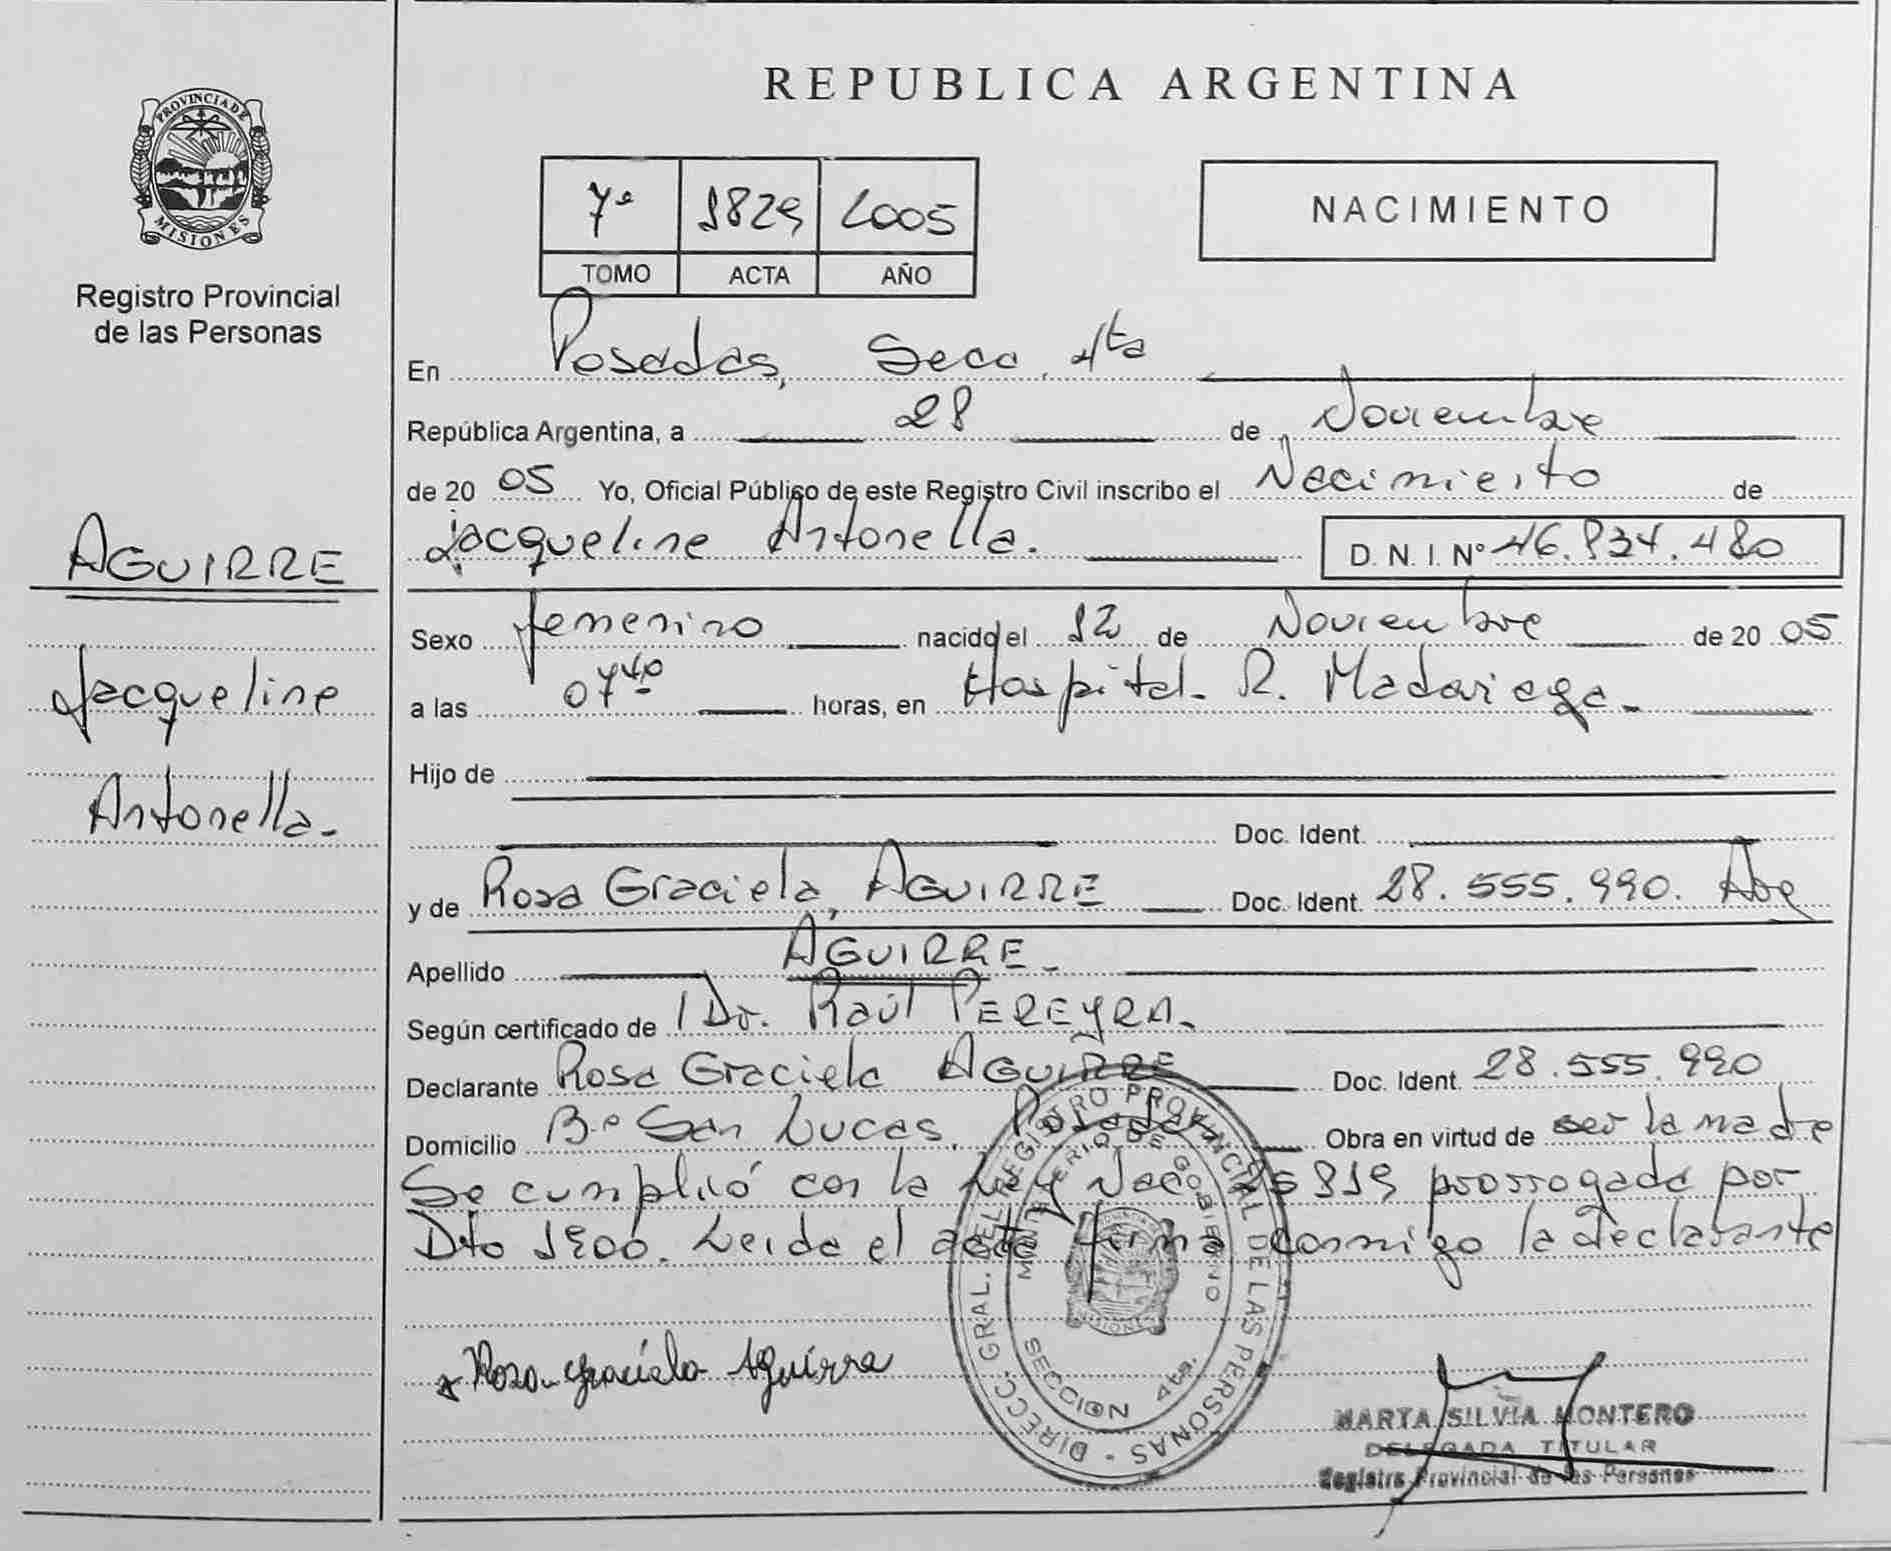 REPUBLICA ARGENTINA
PROVINCIA DE MISIONES
Registro Provincial
de las Personas
7º 1829 2005
TOMO ACTA AÑO
NACIMIENTO
En Posadas, Secc. 4ta
República Argentina, a 28 de Noviembre
de 20 05 Yo, Oficial Público de este Registro Civil inscribo el Nacimiento de
Jacqueline Antonella. D. N. I. Nº 46.834.480
AGUIRRE
Jacqueline
Antonella.
Sexo femenino nacido el 12 de Noviembre de 20 05
a las 07 40 horas, en Hospital. R. Madariaga.
Hijo de
Doc. Ident.
y de Rosa Graciela, AGUIRRE Doc. Ident. 28.555.990.
Apellido AGUIRRE.
Según certificado de Dr. Raúl PEREYRA.
Declarante Rosa Graciela AGUIRRE Doc. Ident. 28.555.990
Domicilio Bº San Lucas. Posadas Obra en virtud de ser la madre
Se cumplió con la Ley Nac. 25819 prorrogada por
Dto 1900. Leida el acta firma conmigo la declarante
Rosa Graciela Aguirre
DIRECC. GRAL. DEL REGISTRO PROVINCIAL DE LAS PERSONAS
MINISTERIO DE GOBIERNO
SECCION 4ta.
MARTA SILVIA MONTERO
DELEGADA TITULAR
Registro Provincial de las Personas